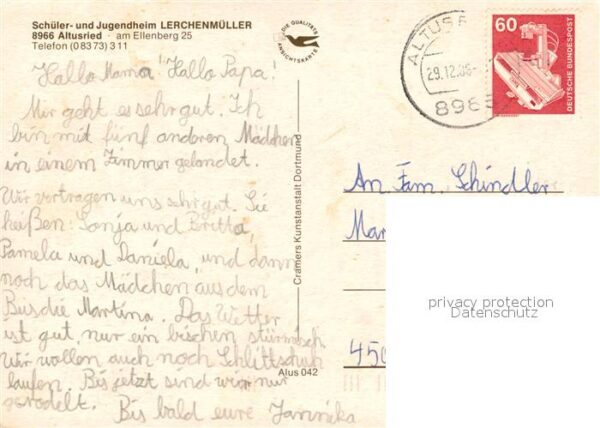 Schüler- und Jugendheim LERCHENMÜLLER
8966 Altusried · am Ellenberg 25
Telefon (0 83 73) 3 11
DIE QUALITÄTS
ANSICHTSKARTE
Hallo Mama! Hallo Papa!
Mir geht es sehr gut. Ich
bin mit fünf anderen Mädchen
in einem Zimmer gelandet.
Wir vertragen uns sehr gut. Sie
heißen: Sonja und Britta,
Pamela und Daniela, und dann
noch das Mädchen aus dem
Bus die Martina. Das Wetter
ist gut, nur ein bischen stürmisch.
Wir wollen auch noch Schlittschuh
laufen. Bis jetzt sind wir nur
gerodelt.
Bis bald eure Jannika
Cramers Kunstanstalt Dortmund
Alus 042
ALTUS
29.12.86-
896
60
DEUTSCHE BUNDESPOST
An Fam. Schindler
Mar
450
privacy protection
Datenschutz